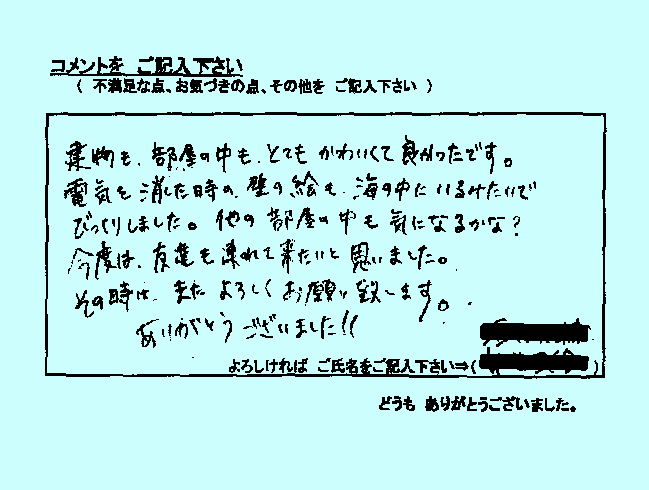 コメントを ご記入下さい
（ 不満足な点、お気づきの点、その他を ご記入下さい ）
建物も、部屋の中も、とてもかわいくて良かったです。
電気を消した時の、壁の絵も、海の中にいるみたいで
びっくりしました。他の部屋の中も気になるかな?
今度は、友達も連れて来たいと思いました。
その時は、またよろしくお願い致します。
ありがとうございました!!
よろしければ ご氏名をご記入下さい⇒（ ）
どうも ありがとうございました。